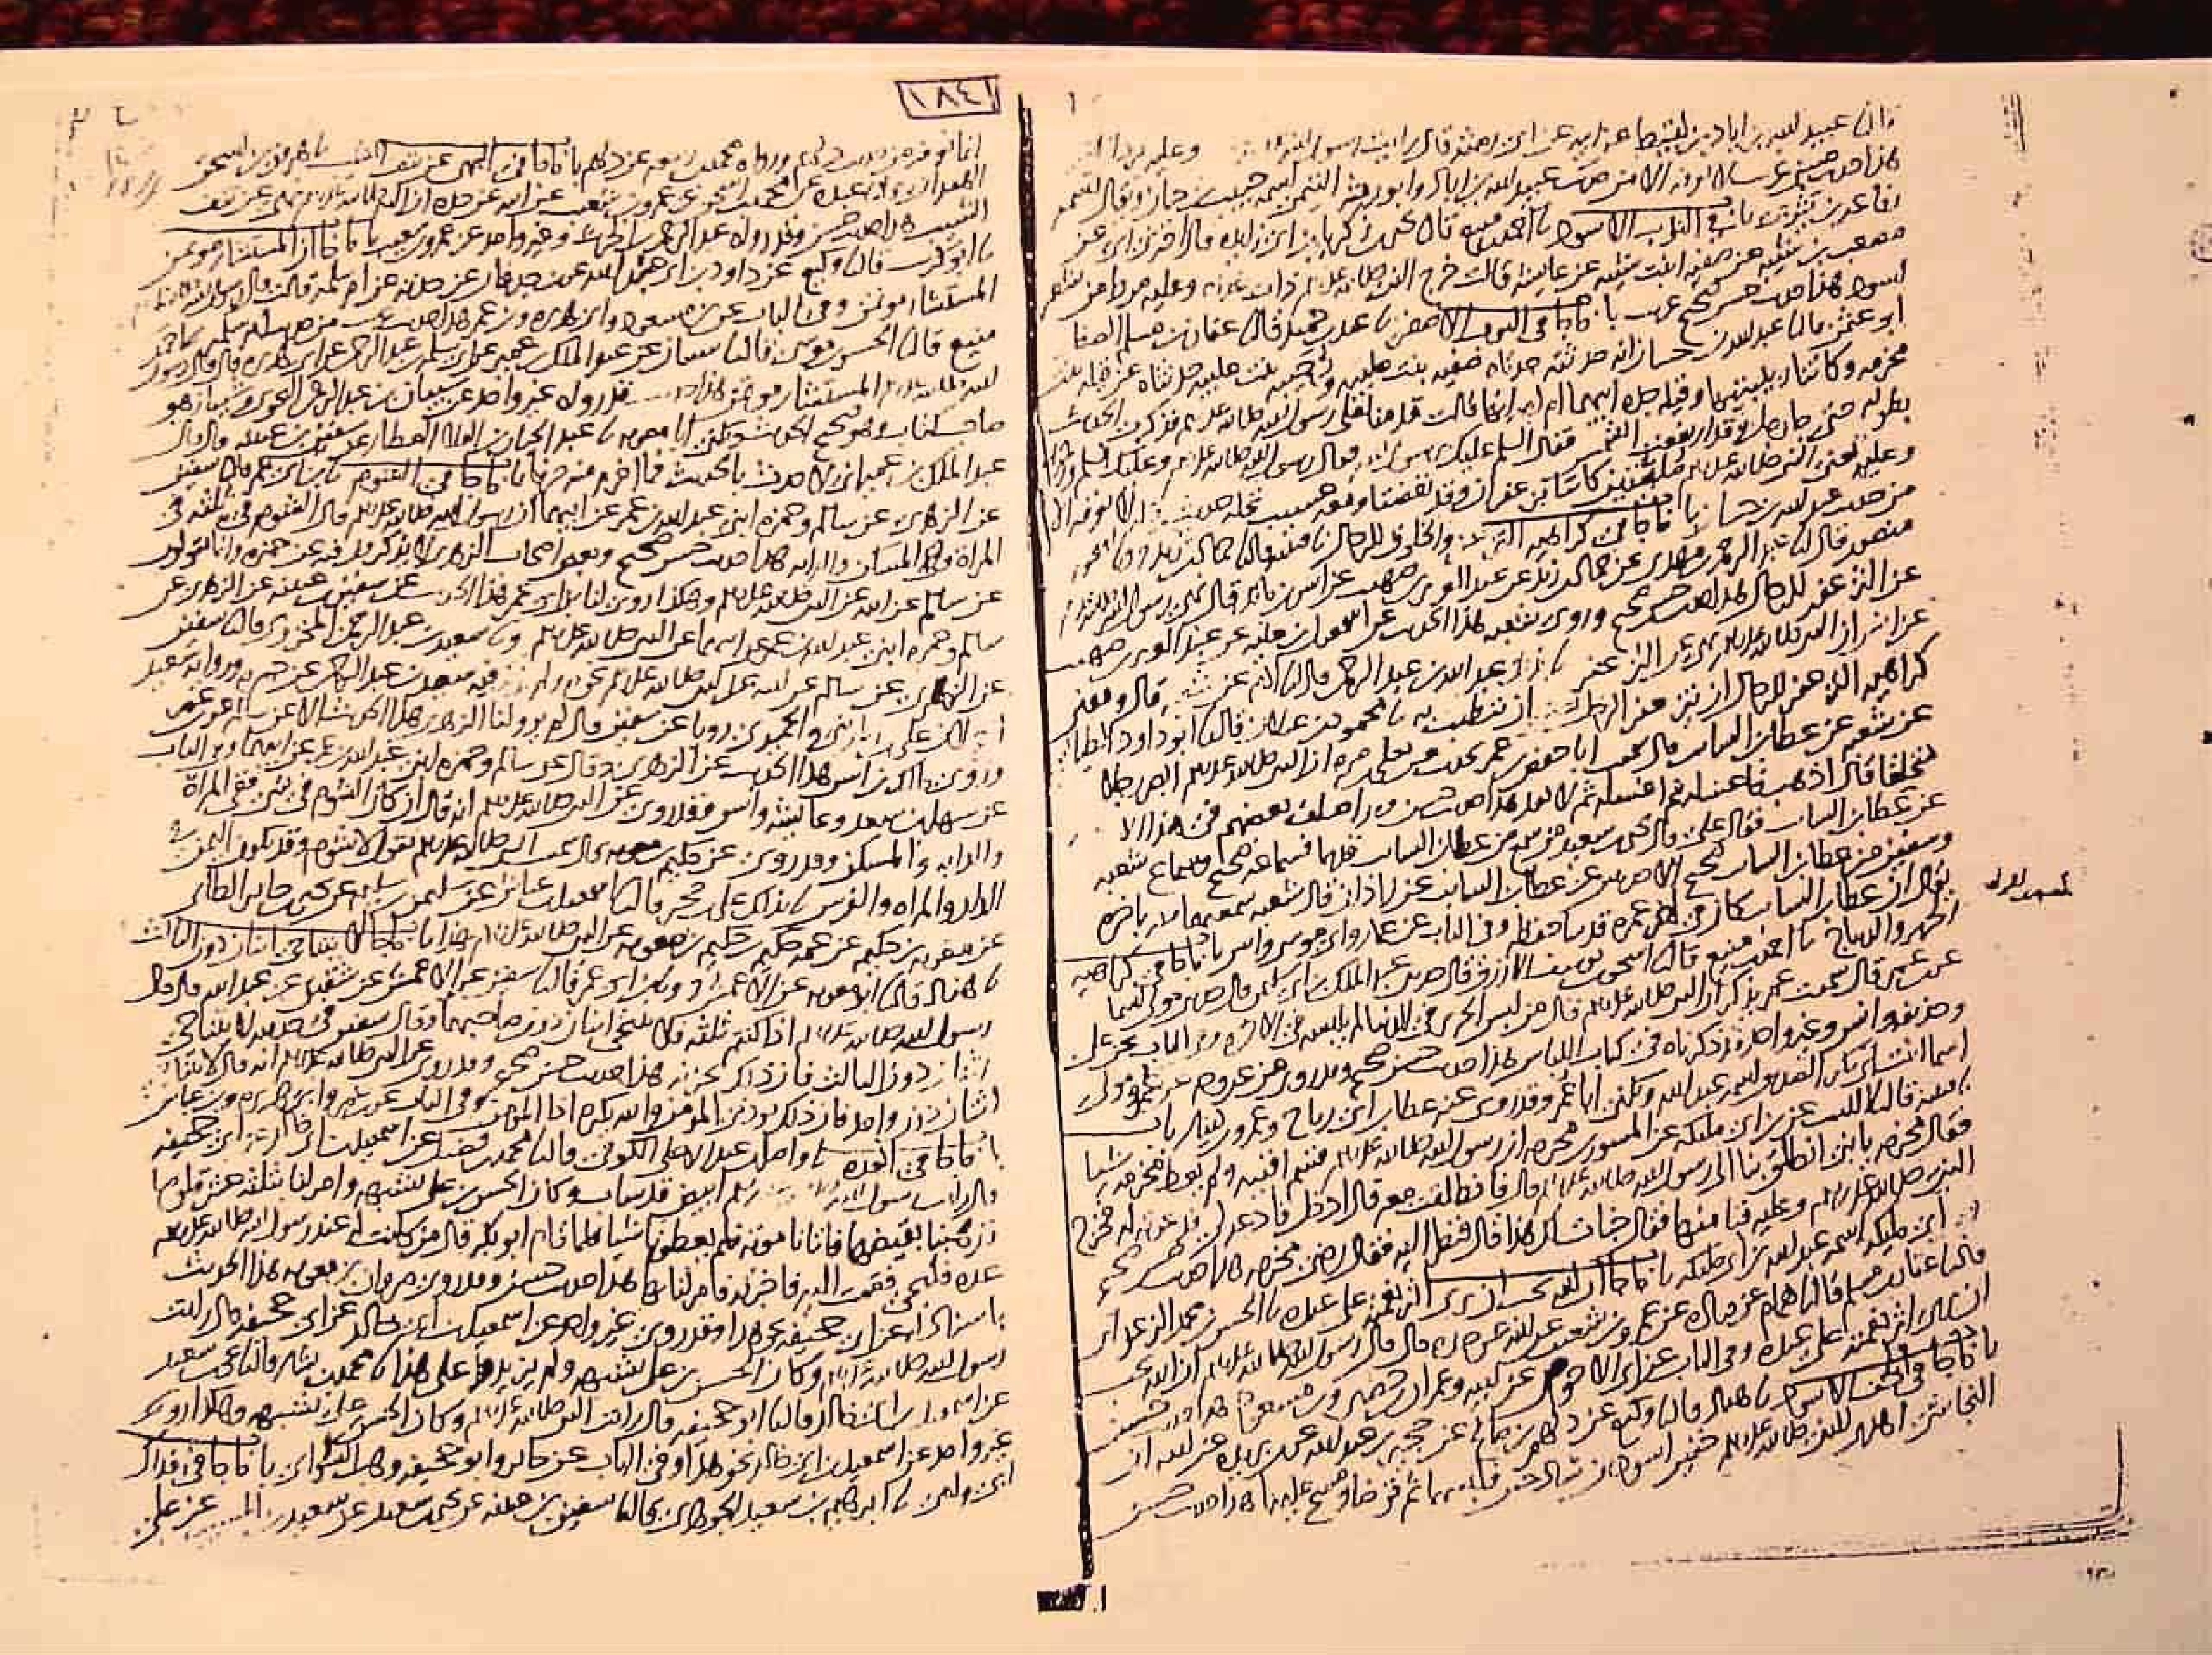 عبيد الله بن اياد بن لقيط عن ابيه عن ابي رمثه قال رايت رسول الله وعليه بردان
هذا حديث حسن غريب لا نعرفه الا من حديث عبيد الله بن اياد وابو رمثه التيمي اسمه حبيب بن حيان ويقال اسمه
رفاعه بن يثربي باب في الثوب الاسود نا احمد بن منيع قال نا يحيى بن زكريا بن ابي زايده قال اخبرني ابي عن
مصعب بن شيبه عن صفيه ابنت شيبه عن عايشه قالت خرج النبي صلى الله عليه وسلم ذات غداه وعليه مرط من شعر
اسود هذا حديث حسن صحيح غريب باب ما جا في الثوب الاصفر نا عبد بن حميد قال نا عفان بن مسلم الصفار
ابو عثمن قال نا عبد الله بن حسان انه حدثته جدتاه صفيه بنت عليبه ودحيبه بنت عليبه حدثتاه عن قيله بنت
مخرمه وكانتا ربيبتيها وقيله جده ابيهما ام امه انها قالت قدمنا على رسول الله صلى الله عليه وسلم فذكرت الحديث
بطوله حتى جا رجل وقد ارتفعت الشمس فقال السلم عليك يرسول الله فقال رسول الله صلى الله عليه وسلم وعليك السلم ورحمة الله
وعليه تعني النبي صلى الله عليه وسلم مليتين كانتا بزعفران وقد نفضتا ومعه عسيب نخله حديث قيله لا نعرفه الا
من حديث عبد الله بن حسان باب ما جا في كراهيه التزعفر والخلوق للرجال نا قتيبه قال نا حماد بن زيد ونا اسحق بن
منصور قال نا عبد الرحمن بن مهدي عن حماد بن زيد عن عبد العزيز بن صهيب عن انس بن مالك قال نهى رسول الله صلى الله عليه وسلم
عن التزعفر للرجال هذا حديث حسن صحيح وروى شعبه هذا الحديث عن اسمعيل بن عليه عن عبد العزيز بن صهيب
عن انس ان النبي صلى الله عليه وسلم نهى عن التزعفر نا بذلك عبد الله بن عبد الرحمن قال نا ادم عن شعبه قال ومعنى
كراهيه التزعفر للرجال ان يتزعفر الرجل ان يتطيب به نا محمود بن غيلان قال نا ابو داود الطيالسي
عن شعبه عن عطا بن السايب قال سمعت ابا حفص بن عمر يحدث عن يعلى بن مره ان النبي صلى الله عليه وسلم ابصر رجلا
متخلقا قال اذهب فاغسله ثم اغسله ثم لا تعد هذا حديث حسن وقد اختلف بعضهم في هذا الا
عن عطا بن السايب فقال علي قال يحيى بن سعيد من سمع من عطا بن السايب قديما فسماعه صحيح وسماع شعبه
وسفين من عطا بن السايب صحيح الا حديثين عن عطا بن السايب عن زاذان قال شعبه سمعتهما منه باخره
يقال ان عطا بن السايب كان في اخر عمره قد سا حفظه وفي الباب عن عمار وابي موسى وانس باب ما جا في كراهيه
الحرير والديباج نا احمد بن منيع قال نا اسحق بن يوسف الازرق قال حدثني عبد الملك بن ابي سليمن قال حدثني مولى اسما
عن ابن عمر قال سمعت عمر يذكر ان النبي صلى الله عليه وسلم قال من لبس الحرير في الدنيا لم يلبسه في الاخره وفي الباب عن علي
وحذيفه وانس وغير واحد قد ذكرناه في كتاب اللباس هذا حديث حسن صحيح وقد روي من غير وجه عن عمر ومولى
اسما ابنت ابي بكر الصديق اسمه عبد الله ويكنى ابا عمر وقد روى عنه عطا بن ابي رباح وعمرو بن دينار باب
نا قتيبه قال نا الليث عن ابن ابي مليكه عن المسور بن مخرمه ان رسول الله صلى الله عليه وسلم قسم اقبيه ولم يعط مخرمه شيا
فقال مخرمه يا بني انطلق بنا الى رسول الله صلى الله عليه وسلم قال فانطلقت معه قال ادخل فادعه لي فدعوته له فخرج
النبي صلى الله عليه وسلم وعليه قبا منها فقال خبات لك هذا قال فنظر اليه فقال رضي مخرمه هذا حديث حسن صحيح
وابن ابي مليكه اسمه عبد الله بن ابي مليكه باب ما جا ان الله يحب ان يرى اثر نعمته على عبده نا الحسن بن محمد الزعفراني
قال نا عفان بن مسلم قال نا همام عن قتاده عن عمرو بن شعيب عن ابيه عن جده قال قال رسول الله صلى الله عليه وسلم ان الله يحب
ان يرى اثر نعمته على عبده وفي الباب عن ابي الاحوص عن ابيه وعمران بن حصين وبن مسعود هذا حديث حسن
باب ما جا في الخف الاسود نا هناد قال نا وكيع عن دلهم بن صالح عن حجير بن عبد الله عن بن بريده عن ابيه ان
النجاشي اهدى للنبي صلى الله عليه وسلم خفين اسودين ساذجين فلبسهما ثم توضا ومسح عليهما هذا حديث حسن
١٨٤
انما نعرفه من حديث دلهم ورواه محمد بن ربيعه عن دلهم باب ما جا في النهي عن نتف الشيب نا هرون بن اسحق
الهمداني نا عبده عن محمد بن اسحق عن عمرو بن شعيب عن ابيه عن جده ان النبي صلى الله عليه وسلم نهى عن نتف
الشيب هذا حديث حسن وقد رواه عبد الرحمن بن الحرث وغير واحد عن عمرو بن شعيب باب ما جا ان المستشار موتمن
نا ابو كريب قال نا وكيع عن داود بن ابي عبد الله عن بن جدعان عن جدته عن ام سلمه قالت قال رسول الله صلى الله عليه وسلم
المستشار موتمن وفي الباب عن بن مسعود وابي هريره وبن عمر هذا حديث غريب من حديث ام سلمه نا احمد بن
منيع قال نا الحسن بن موسى قال نا شيبان عن عبد الملك بن عمير عن ابي سلمه بن عبد الرحمن عن ابي هريره قال قال رسول
الله صلى الله عليه وسلم المستشار موتمن هذا حديث قد رواه غير واحد عن شيبان بن عبد الرحمن النحوي وشيبان هو
صاحب كتاب وهو صحيح الحديث ويكنى ابا معويه نا عبد الجبار بن العلا العطار عن سفين بن عيينه قال قال
عبد الملك بن عمير اني لاحدث بالحديث فما اخرم منه حرفا باب ما جا في الشوم نا بن ابي عمر قال نا سفين
عن الزهري عن سالم وحمزه ابني عبد الله بن عمر عن ابيهما ان رسول الله صلى الله عليه وسلم قال الشوم في ثلثه في
المراه والمسكن والدابه هذا حديث حسن صحيح وبعض اصحاب الزهري لا يذكرون فيه عن حمزه وانما يقولون
عن سالم عن ابيه عن النبي صلى الله عليه وسلم وهكذا روى لنا بن ابي عمر هذا الحديث عن سفين بن عيينه عن الزهري عن
سالم وحمزه ابني عبد الله بن عمر عن ابيهما عن النبي صلى الله عليه وسلم ونا سعيد بن عبد الرحمن المخزومي قال نا سفين
عن الزهري عن سالم عن ابيه عن النبي صلى الله عليه وسلم نحوه ولم يذكر فيه سعيد بن عبد الرحمن عن حمزه وروايه سعيد
اصح لان علي بن المديني والحميدي رويا عن سفين قال لم يرو لنا الزهري هذا الحديث الا عن سالم عن بن عمر
وروى مالك بن انس هذا الحديث عن الزهري وقال عن سالم وحمزه ابني عبد الله بن عمر عن ابيهما وفي الباب
عن سهل بن سعد وعايشه وانس وقد روي عن النبي صلى الله عليه وسلم انه قال ان كان الشوم في شي ففي المراة
والدابه والمسكن وقد روي عن حكيم بن معويه قال سمعت النبي صلى الله عليه وسلم يقول لا شوم وقد يكون اليمن في
الدار والمراه والفرس نا بذلك علي بن حجر قال نا اسمعيل بن عياش عن سليمن بن سليم عن يحيى بن جابر الطائي
عن معويه بن حكيم عن عمه حكيم بن معويه عن النبي صلى الله عليه وسلم بهذا باب ما جا لا يتناجى اثنان دون الثالث
نا هناد قال نا ابو معويه عن الاعمش ونا بن ابي عمر قال نا سفين عن الاعمش عن شقيق عن عبد الله قال قال
رسول الله صلى الله عليه وسلم اذا كنتم ثلثه فلا يتنجى اثنان دون صاحبهما وقال سفين في حديثه لا يتناجى
اثنان دون الثالث فان ذلك يحزنه هذا حديث حسن صحيح وقد روي عن النبي صلى الله عليه وسلم انه قال لا يتناجى
اثنان دون واحد فان ذلك يوذي المومن والله يكره اذا المومن وفي الباب عن بن عمر وابي هريره وبن عباس
باب ما جا في العده نا واصل بن عبد الاعلى الكوفي قال نا محمد بن فضيل عن اسمعيل بن ابي خالد عن ابي جحيفه
قال رايت رسول الله صلى الله عليه وسلم ابيض قد شاب وكان الحسن بن علي يشبهه وامر لنا بثلثه عشر قلوصا
فذهبنا نقبضها فاتانا موته فلم يعطونا شيا فلما قام ابو بكر قال من كانت له عند رسول الله صلى الله عليه وسلم
عده فليجي فقمت اليه فاخبرته فامر لنا بها هذا حديث حسن وقد روى مروان بن معويه هذا الحديث
باسناد له عن ابي جحيفه نحو هذا وقد روى غير واحد عن اسمعيل بن ابي خالد عن ابي جحيفه قال رايت
رسول الله صلى الله عليه وسلم وكان الحسن بن علي يشبهه ولم يزيدوا على هذا نا محمد بن بشار قال نا يحيى بن سعيد
عن اسمعيل بن ابي خالد قال نا ابو جحيفه قال رايت النبي صلى الله عليه وسلم وكان الحسن بن علي يشبهه وهكذا روى
غير واحد عن اسمعيل بن ابي خالد نحو هذا وفي الباب عن جابر وابو جحيفه وهب السوائي باب ما جا في فداك
ابي وامي نا ابرهيم بن سعيد الجوهري قال نا سفين بن عيينه عن يحيى بن سعيد عن سعيد بن المسيب عن علي